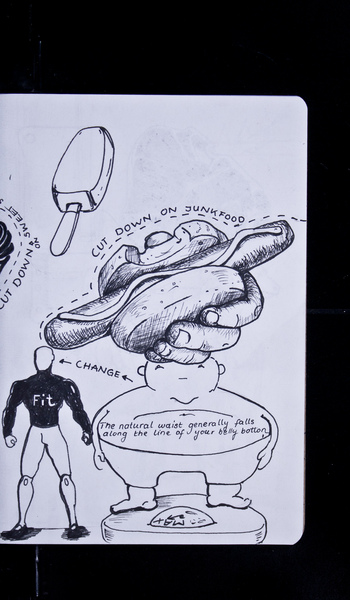 CUT DOWN ON JUNKFOOD
CUT DOWN ON SWEET
← CHANGE ←
Fit
The natural waist generally falls
along the line of your belly botton.